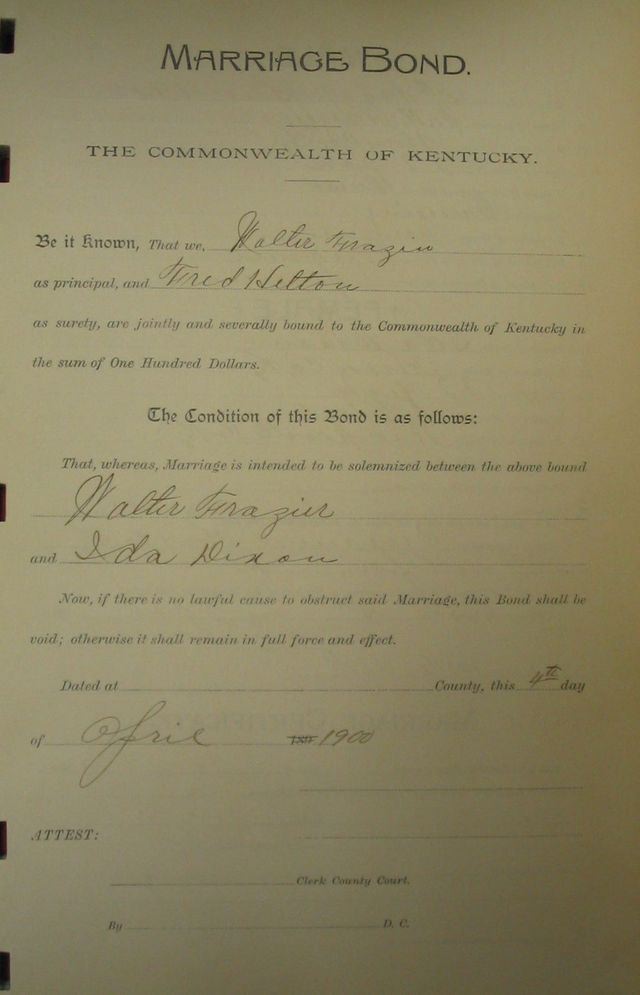 MARRIAGE BOND.
THE COMMONWEALTH OF KENTUCKY.
Be it Known, That we, Walter Frazier
as principal, and Fred Helton
as surety, are jointly and severally bound to the Commonwealth of Kentucky in
the sum of One Hundred Dollars.
The Condition of this Bond is as follows:
That, whereas, Marriage is intended to be solemnized between the above bound
Walter Frazier
and Ida Dixon
Now, if there is no lawful cause to obstruct said Marriage, this Bond shall be
void; otherwise it shall remain in full force and effect.
Dated at County, this 4th day
of April 1900
ATTEST:
Clerk County Court.
By D. C.